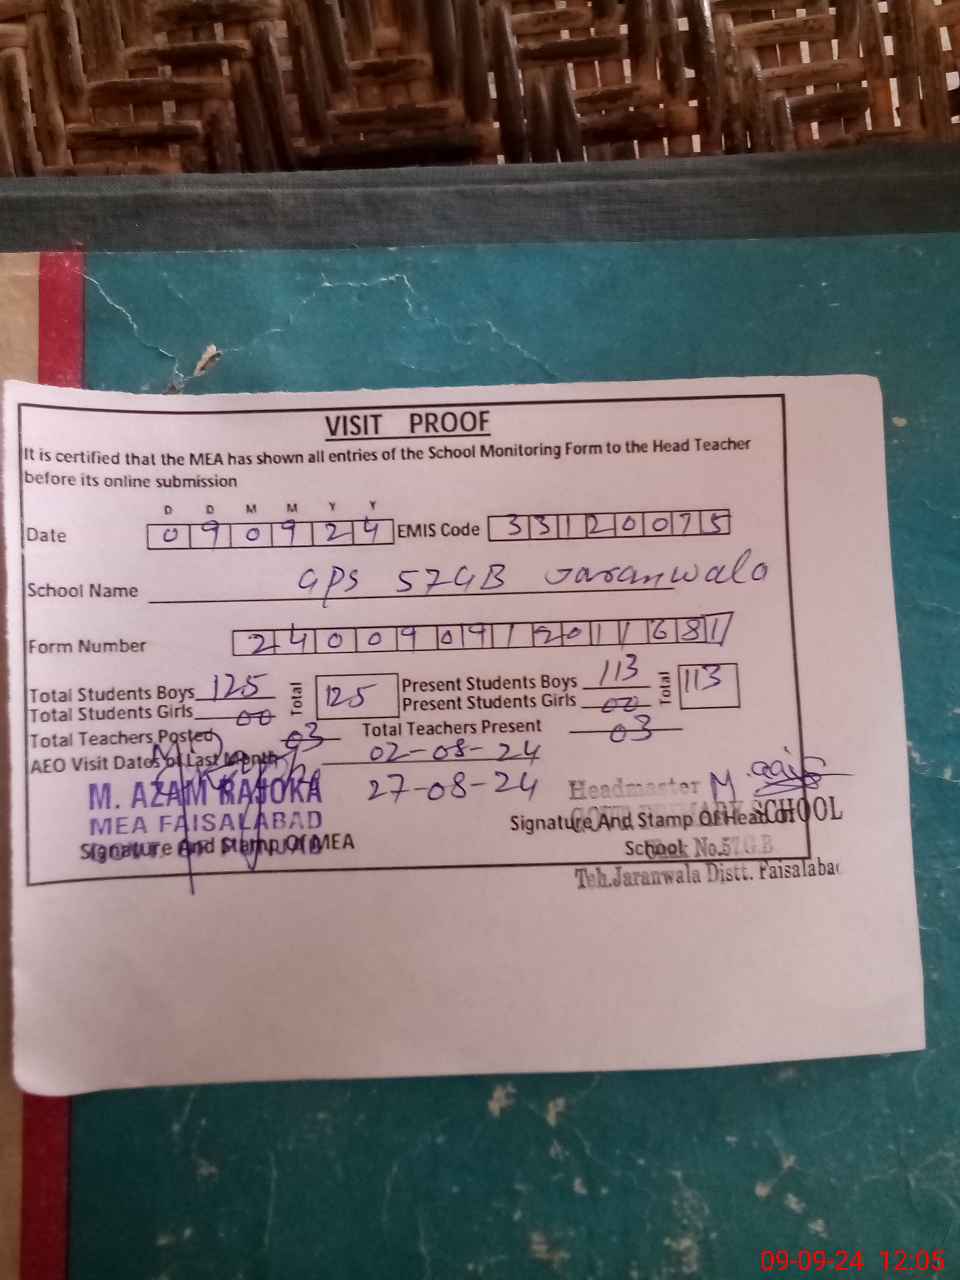 VISIT PROOF
It is certified that the MEA has shown all entries of the School Monitoring Form to the Head Teacher
before its online submission
D D M M Y Y
Date 0 9 0 9 2 4 EMIS Code 3 3 1 2 0 0 7 5
School Name GPS 57GB Jaranwala
Form Number 2 4 0 0 9 0 9 1 2 0 1 1 6 8 1
Total Students Boys 125 Total 125 Present Students Boys 113 Total 113
Total Students Girls 00 Present Students Girls 00
Total Teachers Posted 03 Total Teachers Present 03
AEO Visit Dates of Last Month 02-08-24
27-08-24
M. AZAM RAJOKA
MEA FAISALABAD
Signature And Stamp Of MEA
Headmaster
SCHOOL
Signature And Stamp Of Head of
School No.57G.B
Teh.Jaranwala Distt. Faisalabad
09-09-24 12:05